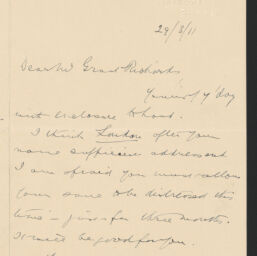 29/8/11
Dear Mr Grant Richards,
Yours of y'day
with enclosure to hand.
I think London after your
name sufficient address and
I am afraid you must allow
your name to be disclosed this
time – just for three months.
It will be good for you.